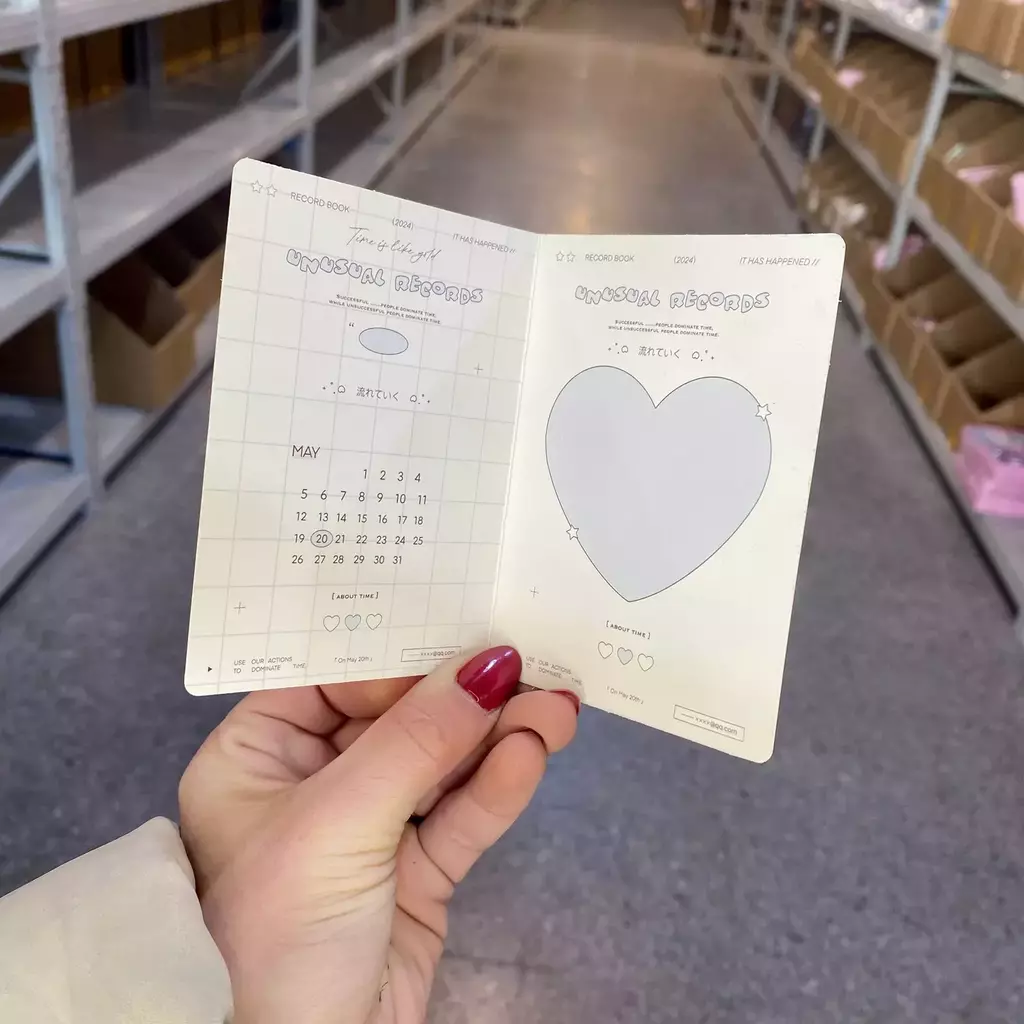 RECORD BOOK
(2024)
IT HAS HAPPENED //
Time is like gold
UNUSUAL RECORDS
SUCCESSFUL ......PEOPLE DOMINATE TIME,
WHILE UNSUCCESSFUL PEOPLE DOMINATE TIME.
“
流れていく
MAY
1 2 3 4
5 6 7 8 9 10 11
12 13 14 15 16 17 18
19 20 21 22 23 24 25
26 27 28 29 30 31
[ ABOUT TIME ]
USE OUR ACTIONS
TO DOMINATE TIME.
「 On May 20th 」
—— ××××@qq.com
RECORD BOOK
(2024)
IT HAS HAPPENED //
UNUSUAL RECORDS
SUCCESSFUL ......PEOPLE DOMINATE TIME,
WHILE UNSUCCESSFUL PEOPLE DOMINATE TIME.
流れていく
[ ABOUT TIME ]
USE OUR ACTIONS
TO DOMINATE TIME.
「 On May 20th 」
—— ××××@qq.com